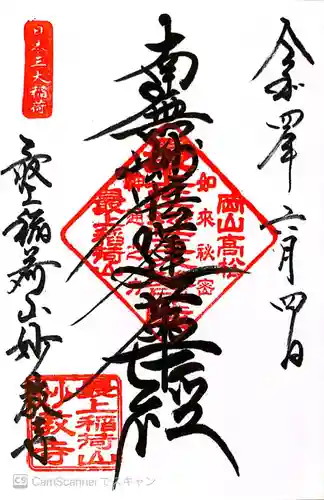 令和四年六月四日
南無妙法蓮華経
日本三大稲荷
岡山高松
如来秘密
神通之力
最上稲荷山
最上稲荷山妙教寺
最上稲荷山
妙教寺
CamScannerでスキャン